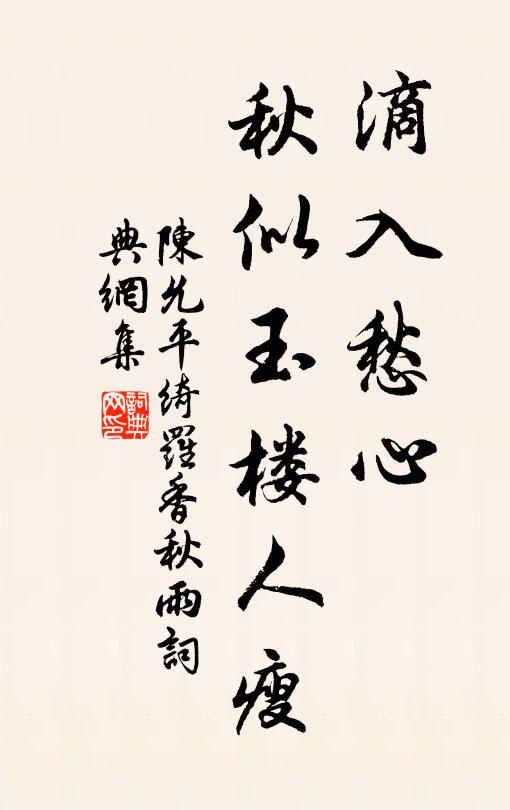 滴入愁心
秋似玉楼人瘦
陳允平綺羅香秋雨詞
典網集
詞典网印